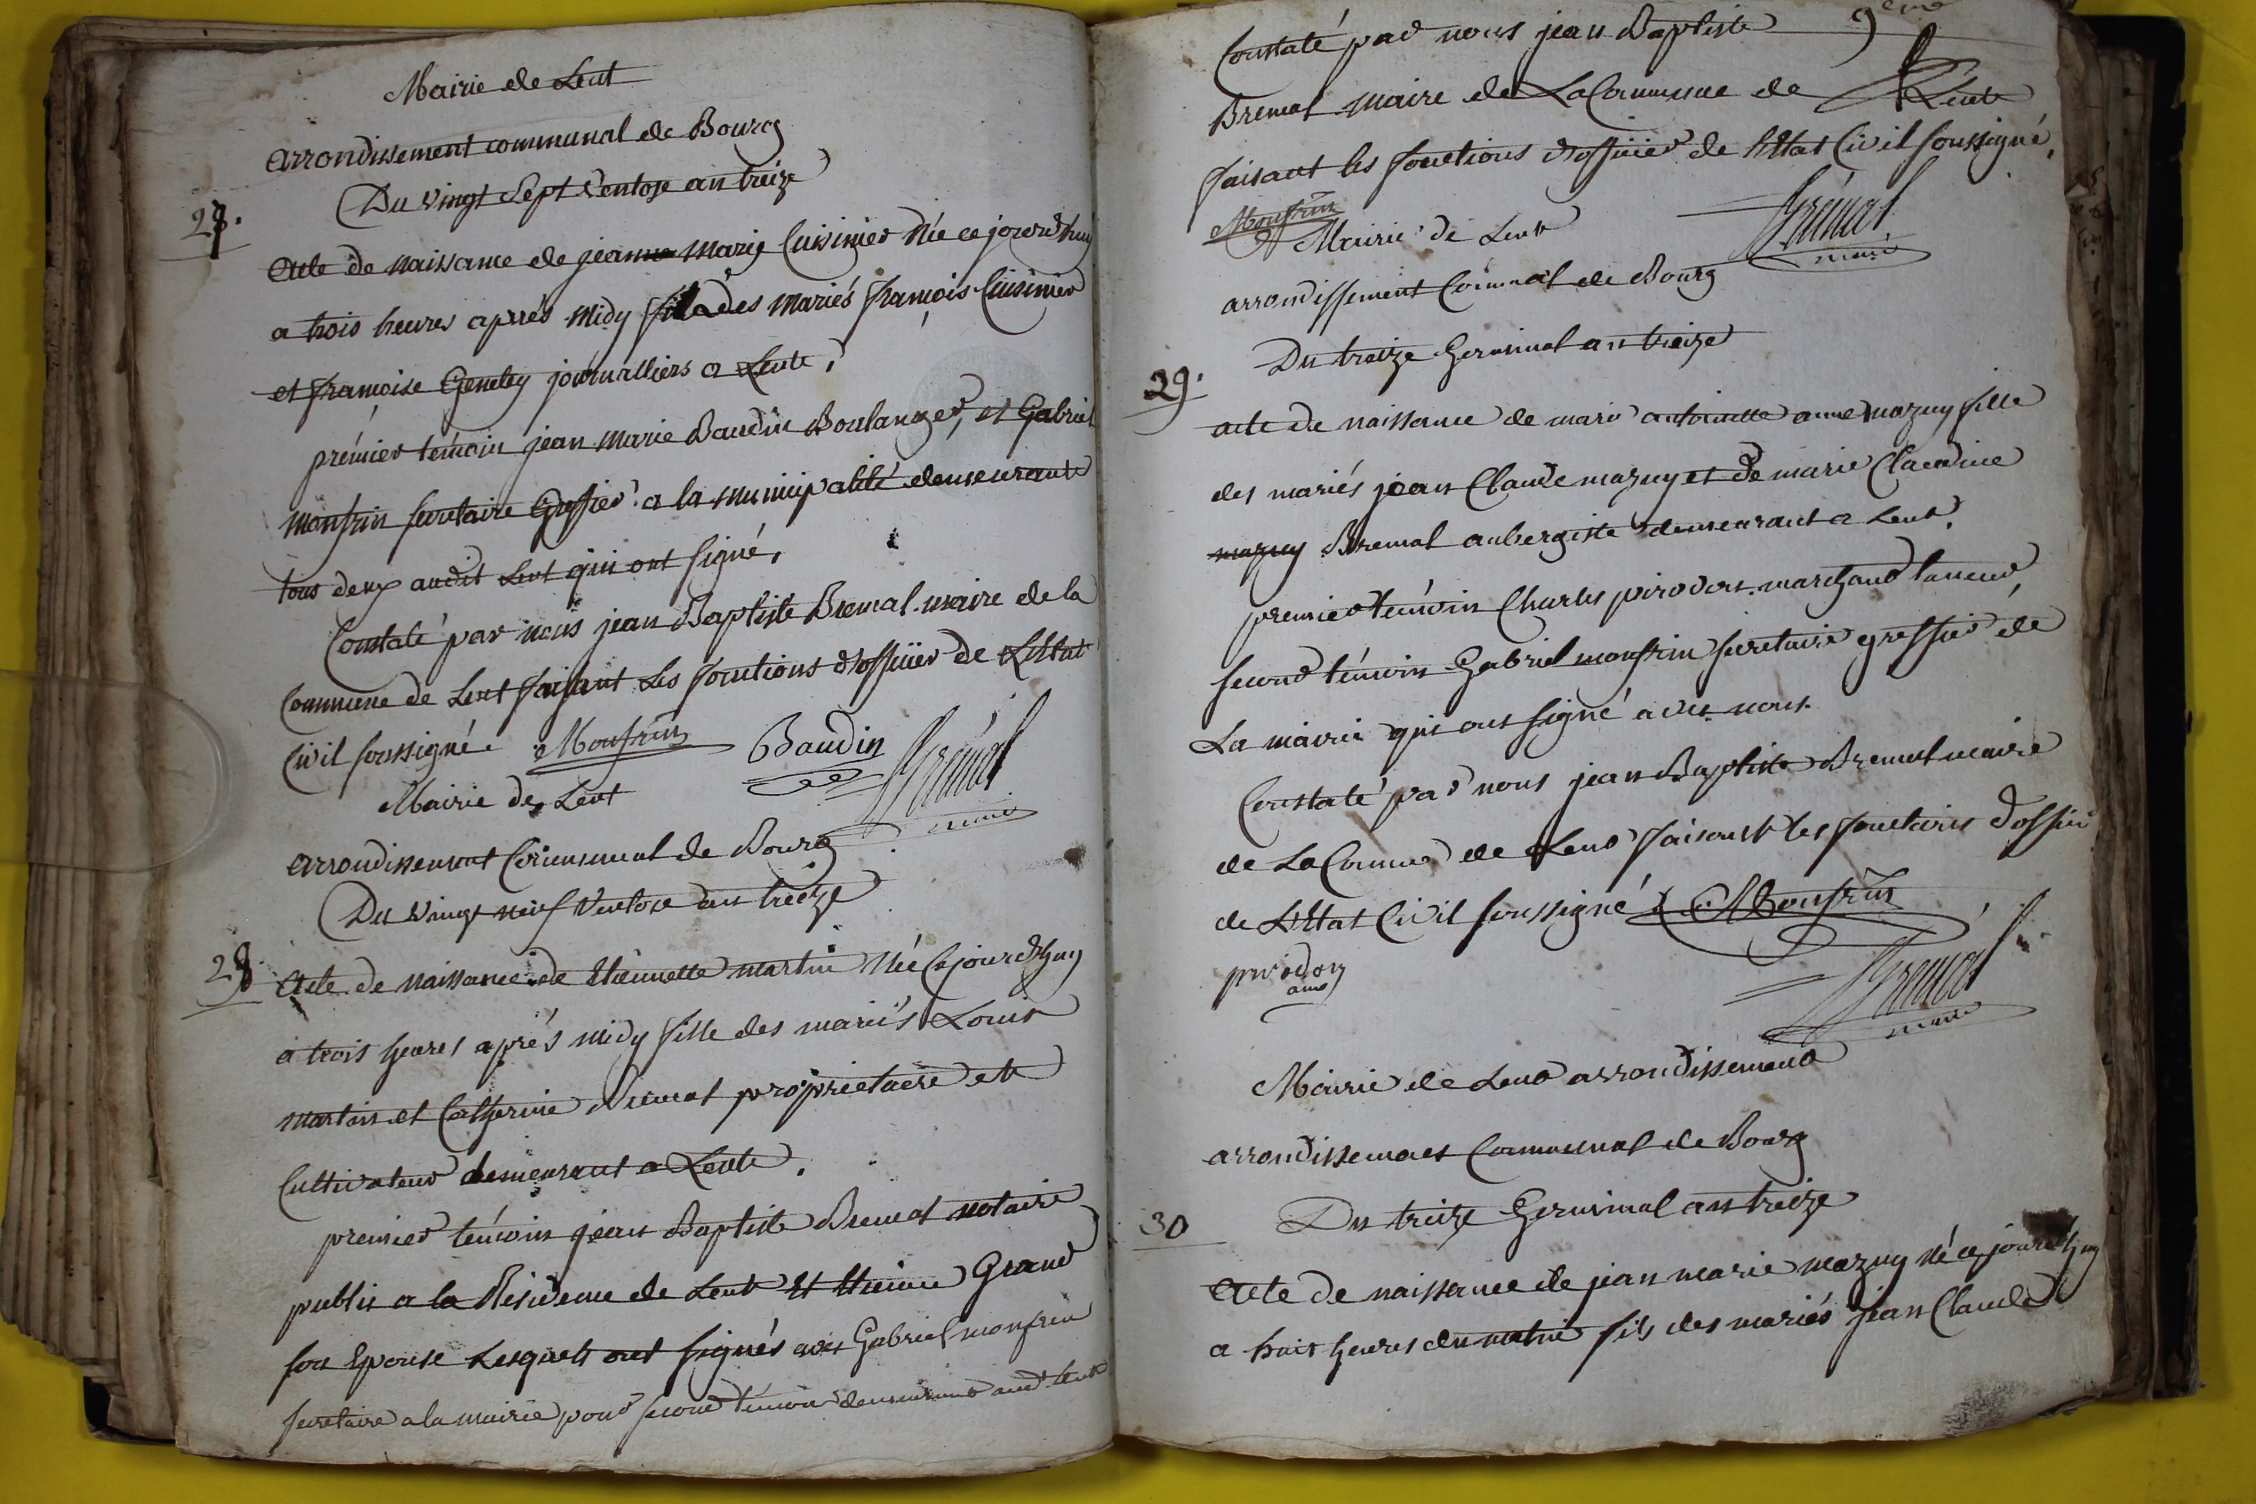 Mairie de Lent
arrondissement communal de Bourg
Du vingt Sept Ventose an treize
27.
acte de naissance de jeanne marie Cuisinier Née ce jourd'huy
a trois heures aprés midy fille des mariés françois Cuisinier
et françoise Genetey journalliers a Lent.
prémier témoin jean marie Baudin Boulanger, et Gabriel
monfrin secretaire Greffier a la municipalité demeurants
tous deux audit Lent qui ont signé.
Constaté par nous jean Baptiste Bremal maire de la
Commune de Lent faisant Les fonctions d'officier de L'Etat
Civil soussigné. Monfrin Baudin Brémal
maire
Mairie de Lent
arrondissement Communal de Bourg
Du vingt neuf Ventose an treize
28.
Acte de naissance de Etiennette martin Née Cejourd'huy
a trois heures aprés midy fille des mariés Louis
martin et Catherine Bremal proprietaire et
Cultivateur demeurant a Lent.
premier témoin jean Baptiste Bremal notaire
public a la Résidence de Lent Et Etienne Grand
son Epouse Lesquels ont signés avec Gabriel monfrin
secretaire a la mairie pour second témoin demeurant aud. Lent
9eme
Constaté par nous jean Baptiste
Bremal maire de La Commune de Lent
faisant les fonctions d'officier de l'Etat Civil soussigné.
Monfrin Brémal
maire
Mairie de Lent
arrondissement Communal de Bourg
Du treize Germinal an treize
29.
acte de naissance de marie antoinette anne mazuy fille
des mariés jean Claude mazuy et de marie Claudine
mazuy Bremal aubergiste demeurant a Lent.
premier témoin Charles pirodon marchand tanneur,
second témoin Gabriel monfrin secretaire greffier de
La mairie qui ont signé avec nous.
Constaté par nous jean Baptiste Bremal maire
de La Commune de Lent faisant les fonctions d'officier
de L'Etat Civil soussigné Monfrin
pirodon
Brémal
maire
Mairie de Lent arrondissement
arrondissement Communal de Bourg
Du treize Germinal an treize
30
Acte de naissance de jean marie mazuy né ce jourd'huy
a huit heures du matin fils des mariés jean Claude